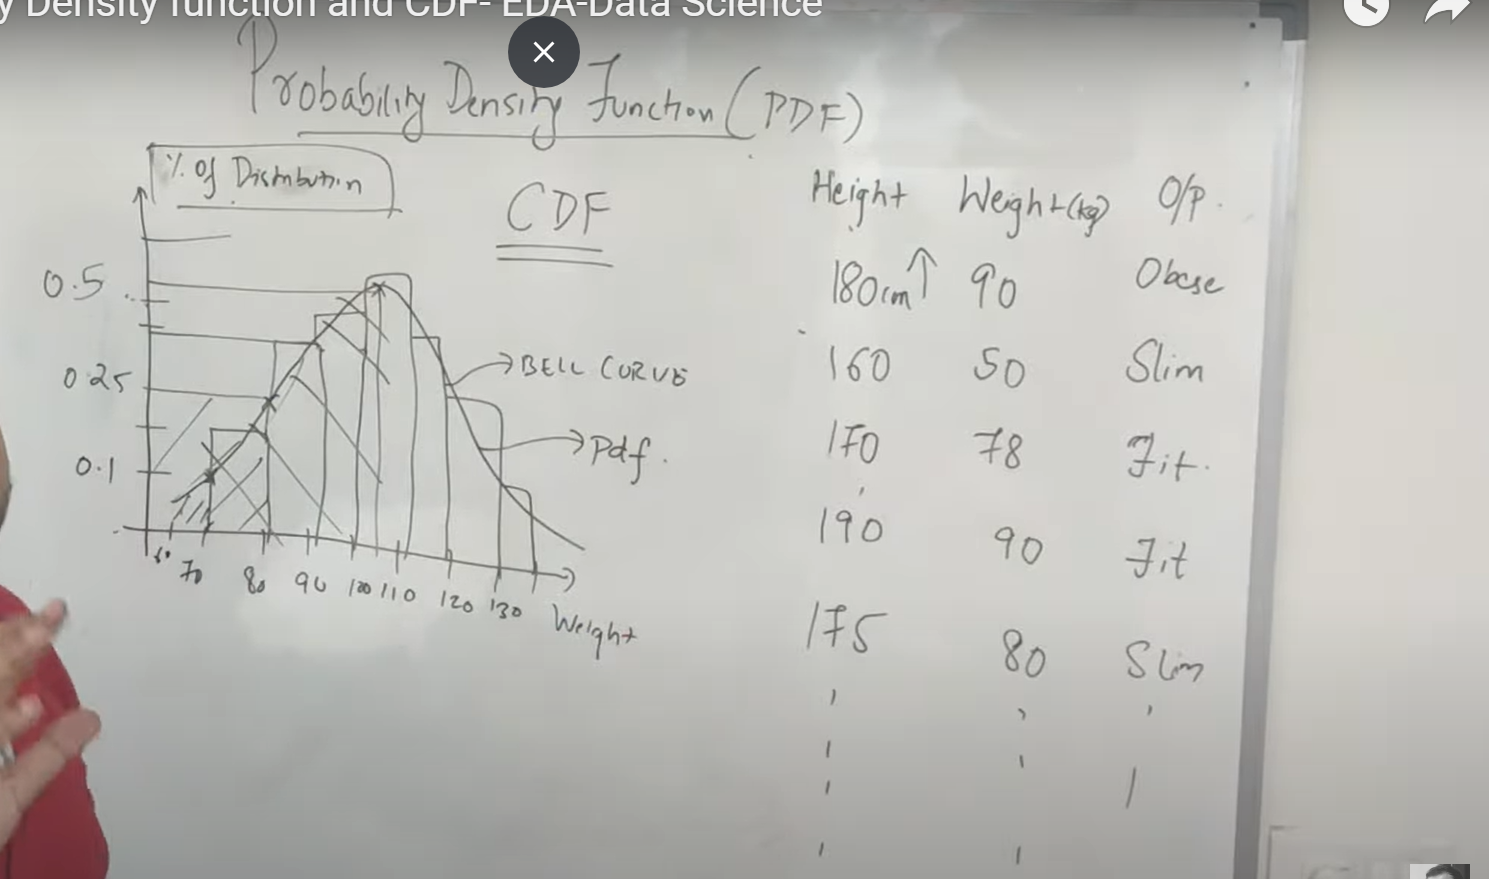 y Density function and CDF- EDA-Data Science
Probability Density Function (PDF)
% of Distribution
CDF
0.5
0.25
0.1
BELL CURVE
Pdf.
60 70 80 90 100 110 120 130 Weight
Height Weight(kg) O/P.
180cm ↑ 90 Obese
160 50 Slim
170 78 Fit.
190 90 Fit
175 80 Slim